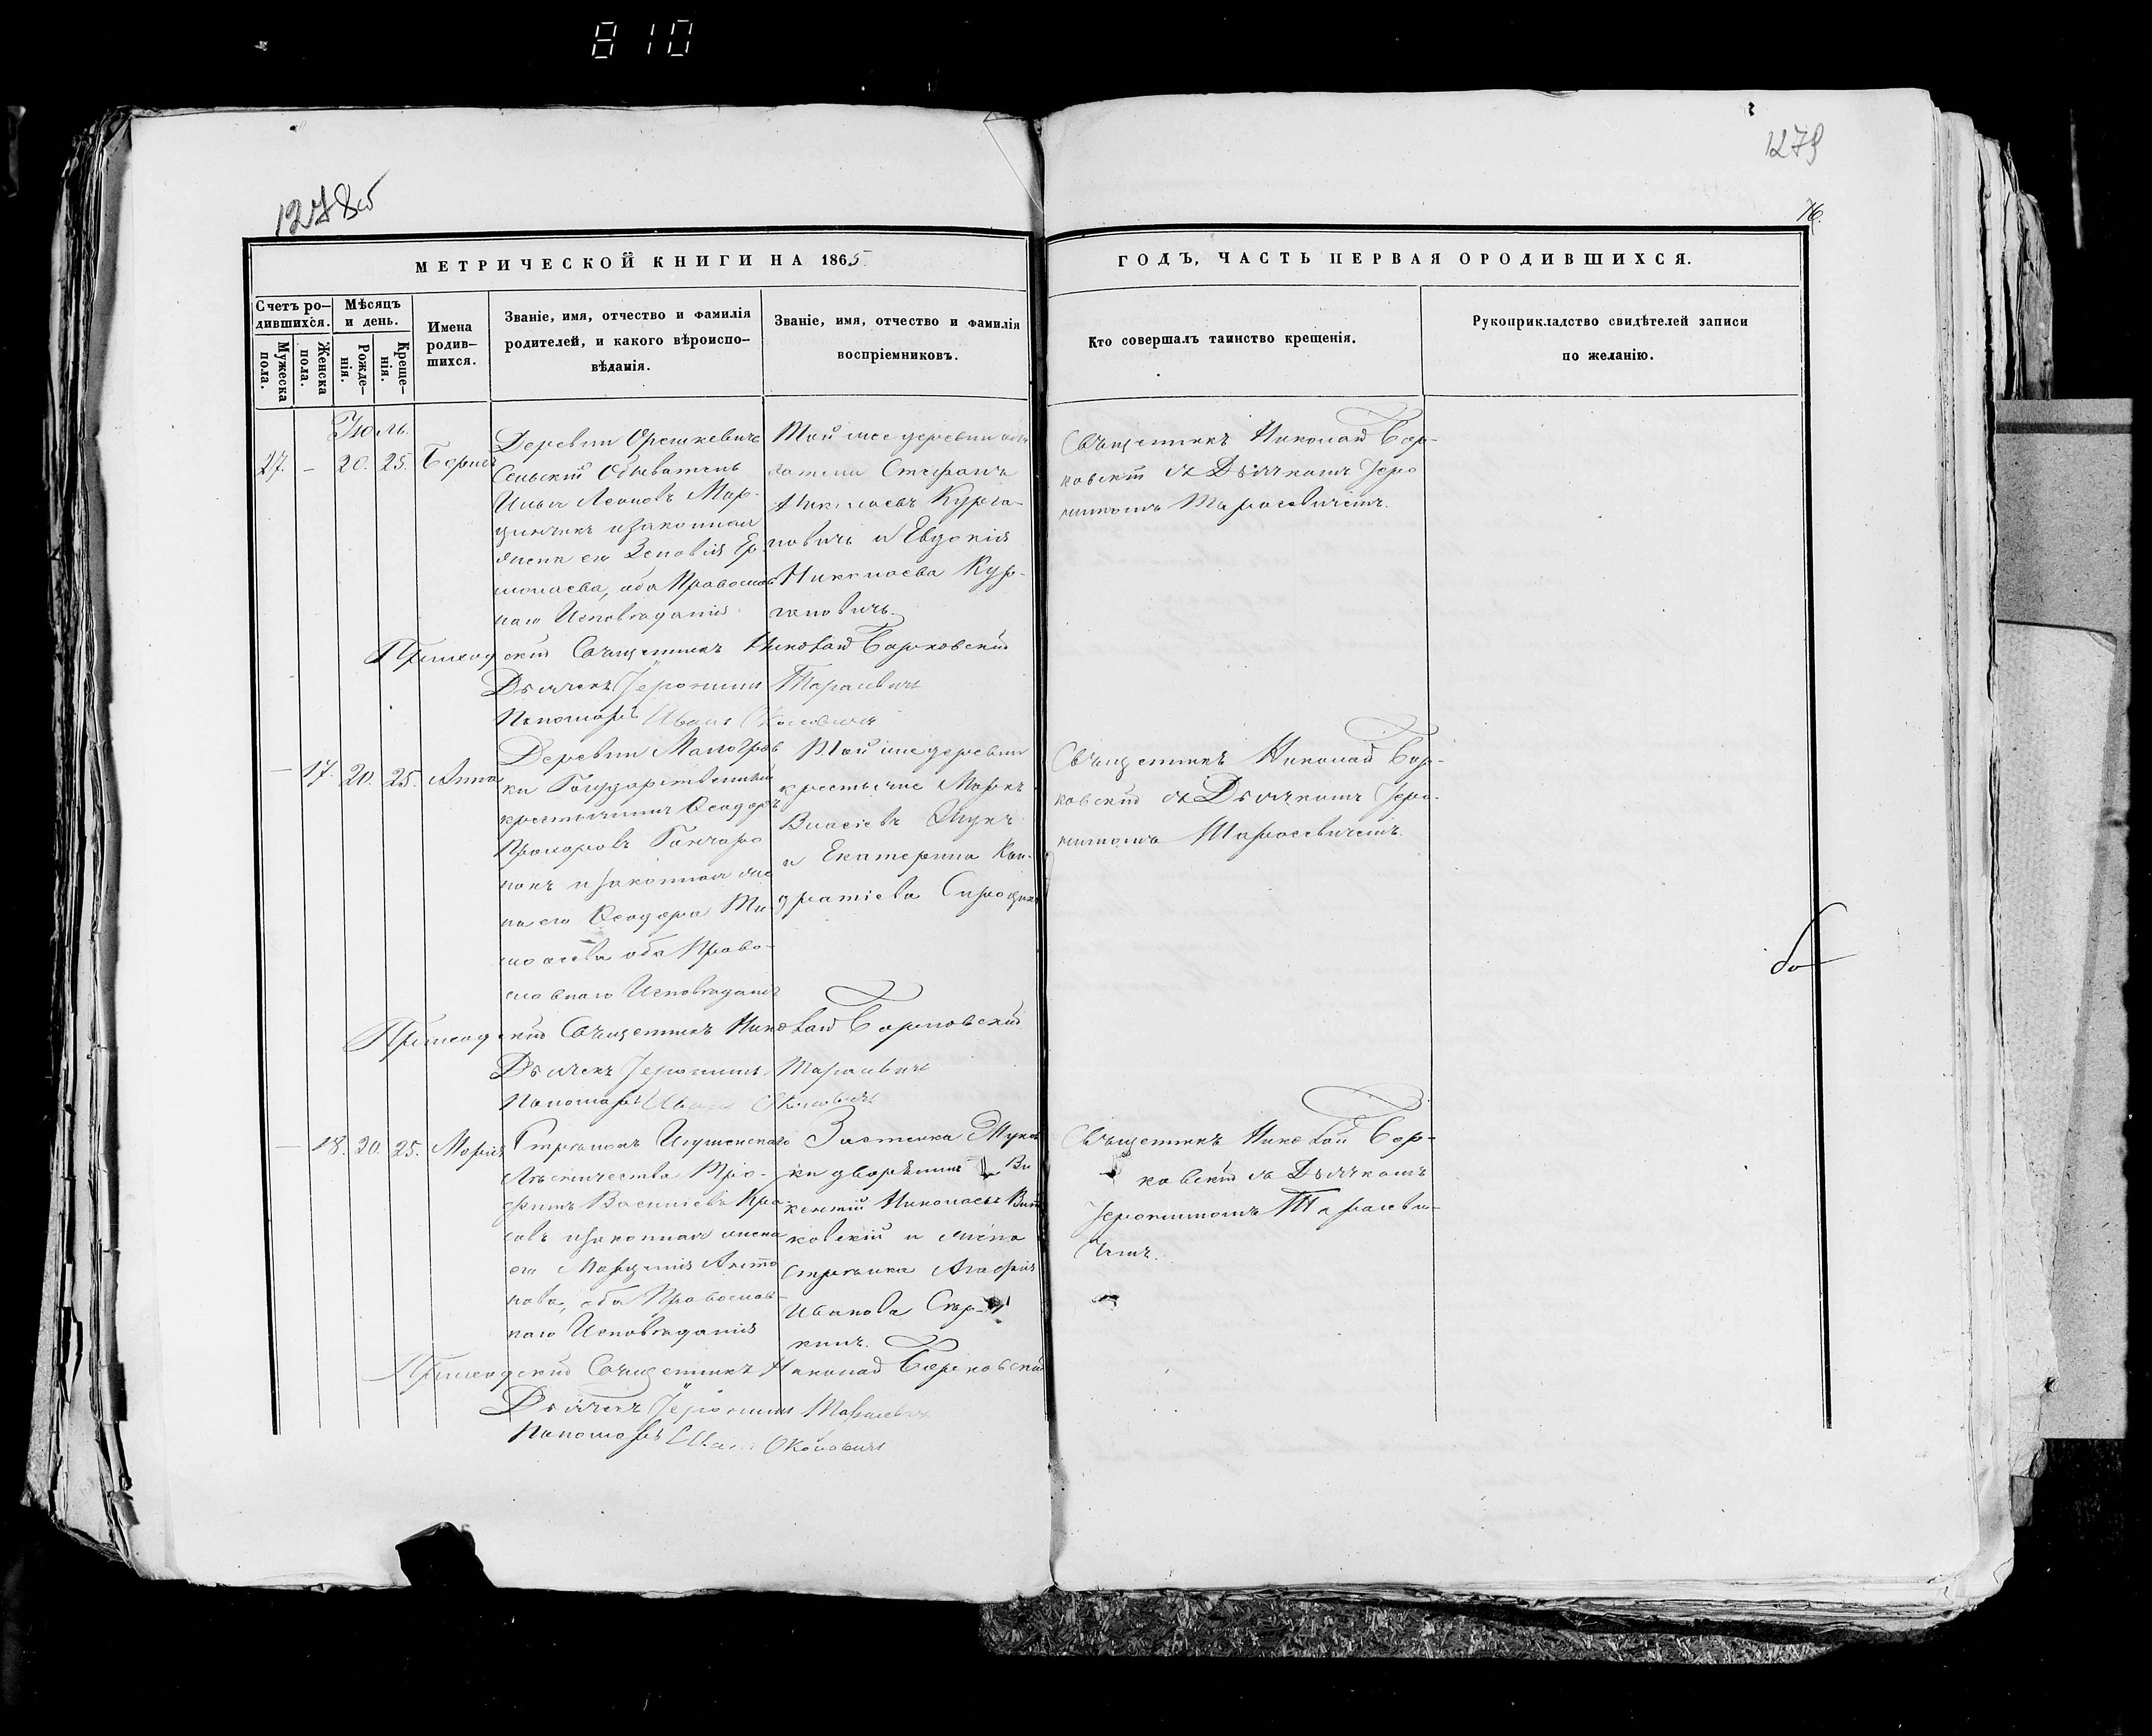 810
1278об
1279
76.
МЕТРИЧЕСКОЙ КНИГИ НА 1865
ГОДЪ, ЧАСТЬ ПЕРВАЯ ОРОДИВШИХСЯ.
Счетъ ро-
дившихся.
Мужеска пола.
Женска пола.
Мѣсяцъ
и день.
Рожде-
нія.
Креще-
нія.
Имена
родив-
шихся.
Званіе, имя, отчество и фамилія
родителей, и какого вѣроиспо-
вѣданія.
Званіе, имя, отчество и фамилія
воспріемниковъ.
Кто совершалъ таинство крещенія.
Рукоприкладство свидѣтелей записи
по желанію.
Іюль.
27. — 20. 25. Борисъ
Деревни Орешкевичъ
Сельскій Обыватель
Илья Леоновъ Мар-
и законная
жена его Зеновія Ер-
молаева, оба Православ
наго Исповѣданія
Той же деревни
Стефанъ
Николаевъ Курга-
новичъ и Евдокія
Николаева Кур-
гановичъ.
Священникъ Николай Бор-
ковскій съ Дьячкомъ Іеро
нимомъ Тарасевичемъ.
Приходскій Священникъ Николай Борковскій
Дьячекъ Іеронимъ Тарасевичъ
Пономарь Иванъ Околовичъ
— 17. 20. 25. Анна
Деревни
ки Государственный
крестьянинъ Ѳеодоръ
Прохоровъ Гончаро
нокъ и законная же
на его Ѳеодора Ти-
моѳеева оба Право-
славнаго Исповѣданія
Той же деревни
крестьяне Маркъ
Власіевъ
и Екатерина Кон-
дратіева
Священникъ Николай Бор-
ковскій съ Дьячкомъ Іеро-
нимомъ Тарасевичемъ.
Приходскій Священникъ Николай Борковскій
Дьячекъ Іеронимъ Тарасевичъ
Пономарь Иванъ Околовичъ
— 18. 20. 25. Марія
Стрѣлокъ Игуменскаго
Лѣсничества Тро-
фимъ Василіевъ
и законная жена
его Анто
нова, оба Православ-
наго Исповѣданія
Застенка
ки дворянинъ Ви
кентій Николаевъ
ковскій и жена
стрѣлка Агафія
Иванова
кинъ.
Священникъ Николай Бор-
ковскій съ Дьячкомъ
Іеронимомъ Тарасеви-
чемъ.
Приходскій Священникъ Николай Борковскій
Дьячекъ Іеронимъ Тарасевичъ
Пономарь Иванъ Околовичъ